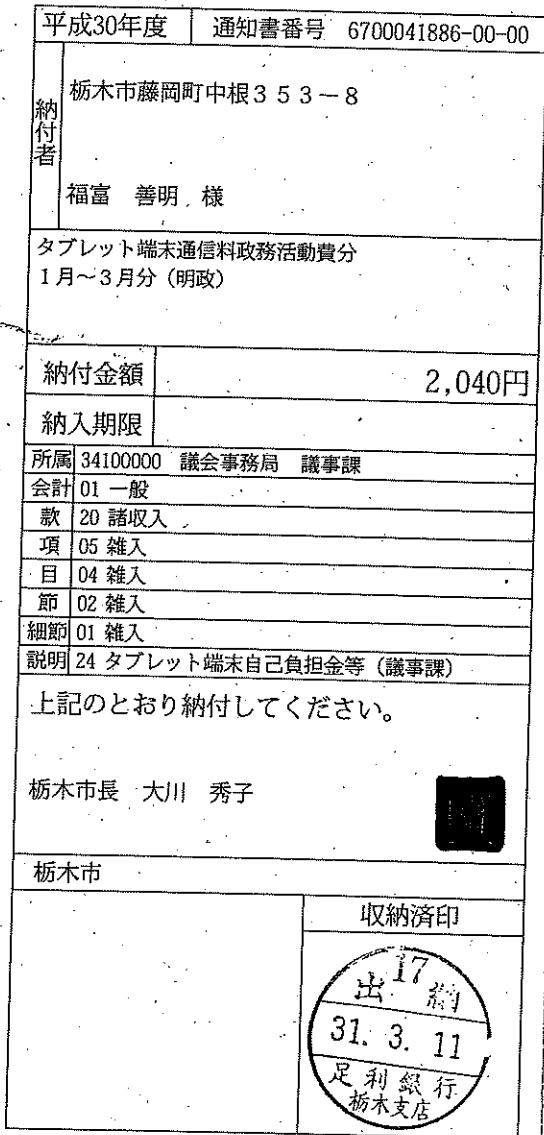 平成30年度 通知書番号 6700041886-00-00
納付者
栃木市藤岡町中根353-8
福富 善明 様
タブレット端末通信料政務活動費分
1月～3月分(明政)
納付金額 2,040円
納入期限
所属 34100000 議会事務局 議事課
会計 01 一般
款 20 諸収入
項 05 雑入
目 04 雑入
節 02 雑入
細節 01 雑入
説明 24 タブレット端末自己負担金等(議事課)
上記のとおり納付してください。
栃木市長 大川 秀子
栃木市
収納済印
17
出納
31. 3. 11
足利銀行
栃木支店